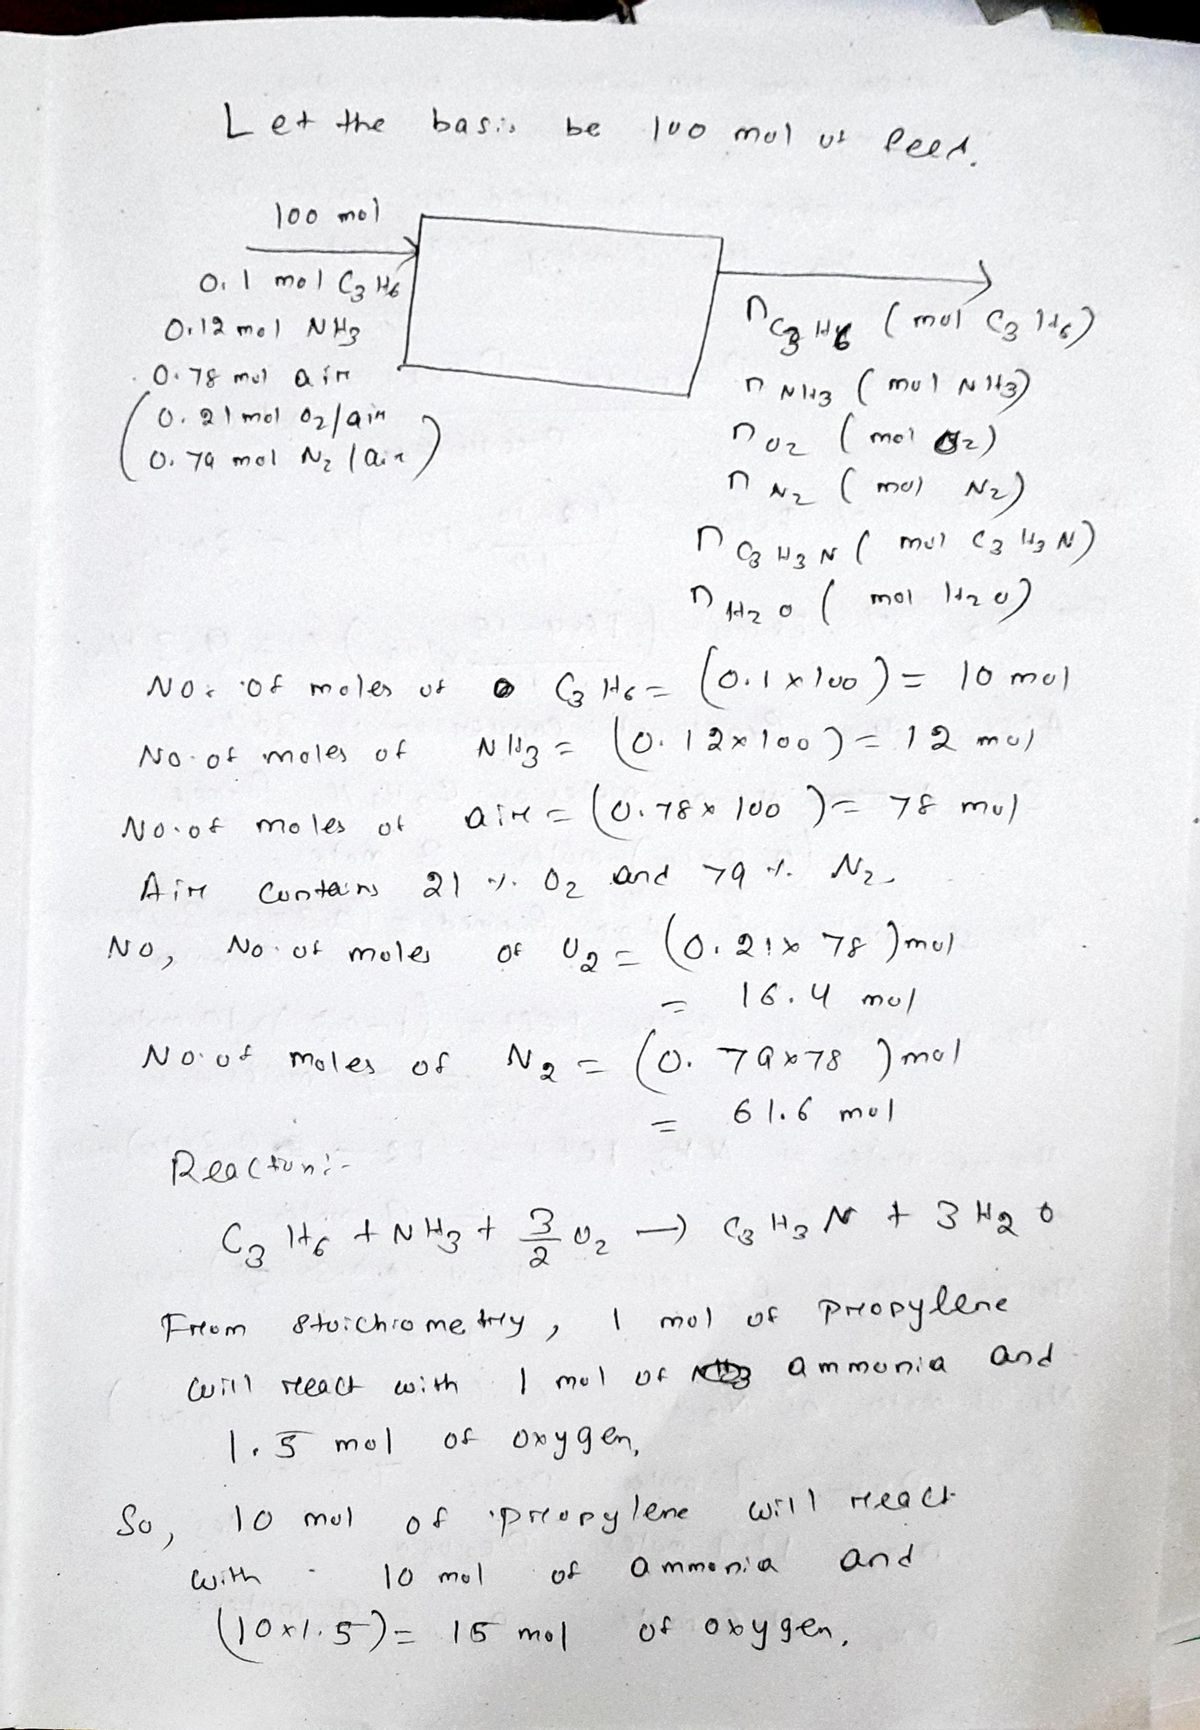 Let the basis be 100 mol of feed.
100 mol
0.1 mol C3H6
0.12 mol NH3
0.78 mol air
(0.21 mol O2/air
0.79 mol N2/air)
nC3H6 (mol C3H6)
nNH3 (mol NH3)
nO2 (mol O2)
nN2 (mol N2)
nC3H3N (mol C3H3N)
nH2O (mol H2O)
No. of moles of C3H6 = (0.1×100) = 10 mol
No. of moles of NH3 = (0.12×100) = 12 mol
No. of moles of air = (0.78×100) = 78 mol
Air contains 21 % O2 and 79 % N2.
No, No. of moles of O2 = (0.21×78) mol
= 16.4 mol
No. of moles of N2 = (0.79×78) mol
= 61.6 mol
Reacton:-
C3H6 + NH3 + 3/2 O2 → C3H3N + 3H2O
From stoichiometry, 1 mol of propylene
will react with 1 mol of ammonia and
1.5 mol of oxygen.
So, 10 mol of propylene will react
with 10 mol of ammonia and
(10×1.5) = 15 mol of oxygen.